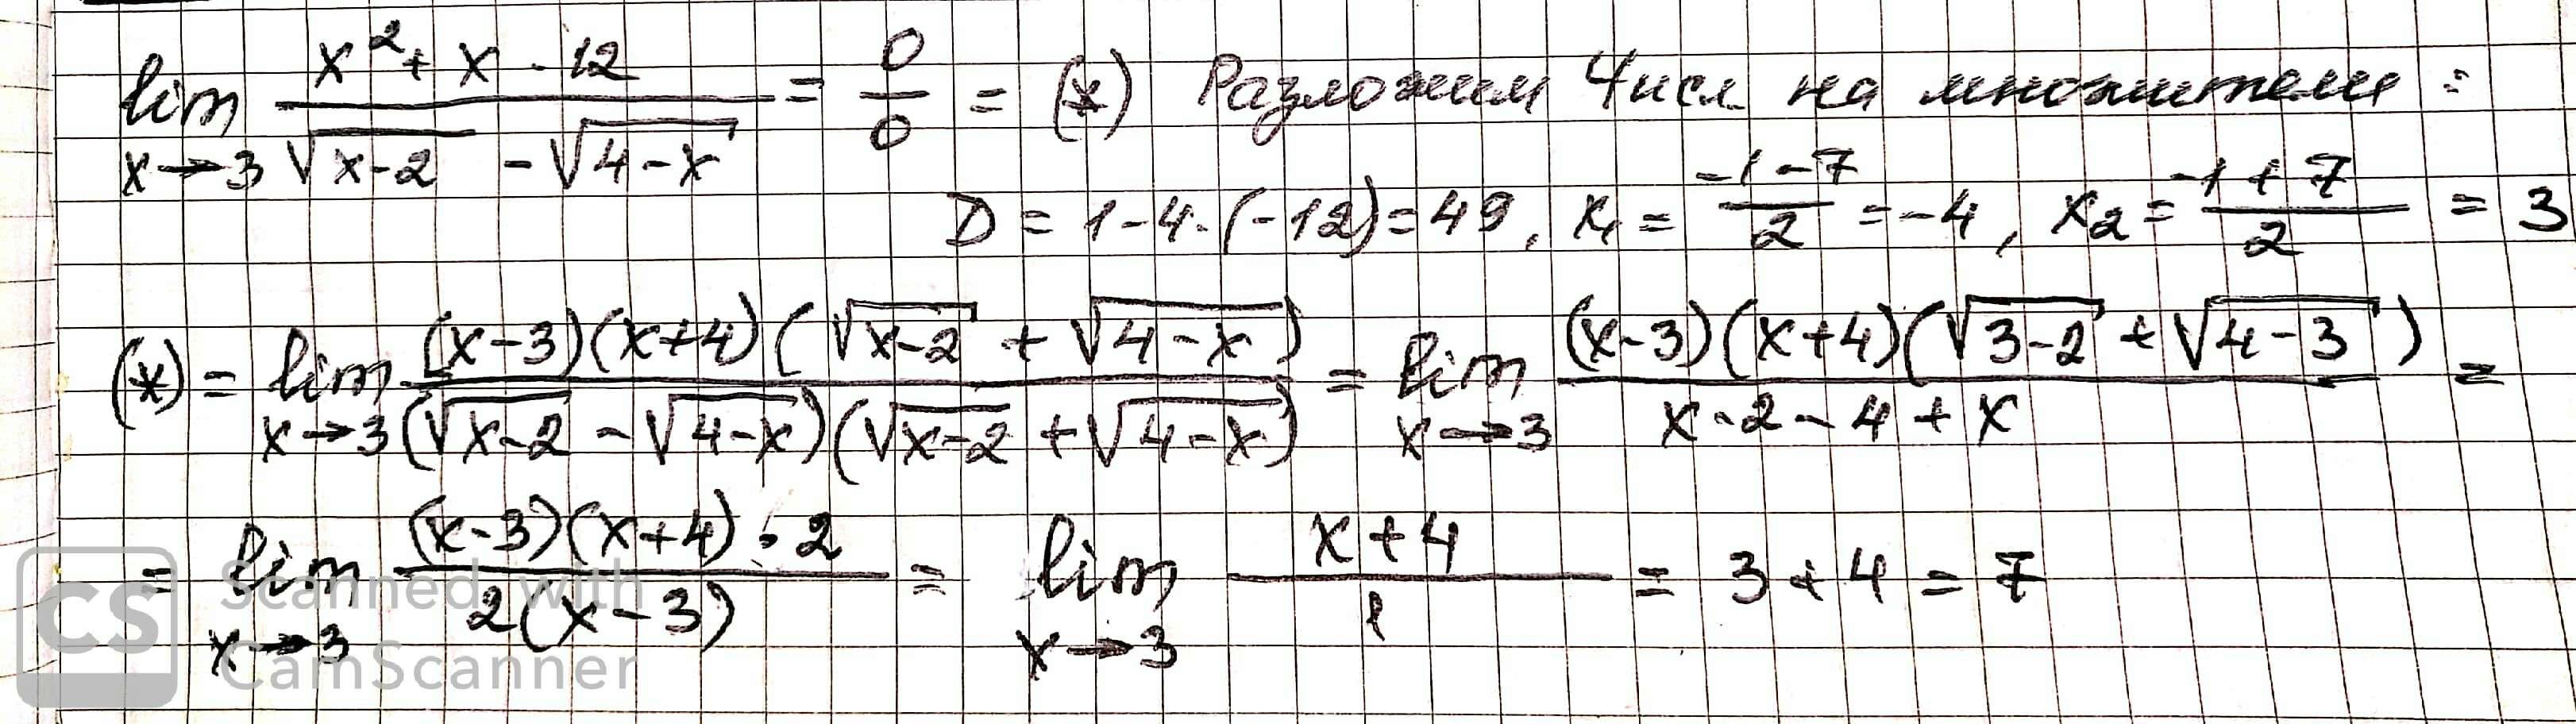 lim x→3 (x² + x - 12)/(√(x-2) - √(4-x)) = 0/0 = (*) Разложим Числ на множители:
D = 1-4·(-12)=49, x₁ = (-1-7)/2 = -4, x₂ = (-1+7)/2 = 3
(*) = lim x→3 ((x-3)(x+4)(√(x-2) + √(4-x)))/((√(x-2) - √(4-x))(√(x-2) + √(4-x))) = lim x→3 ((x-3)(x+4)(√(3-2) + √(4-3)))/(x-2-4+x) =
= lim x→3 ((x-3)(x+4)·2)/(2(x-3)) = lim x→3 (x+4)/1 = 3+4 = 7
CS Scanned with
CamScanner